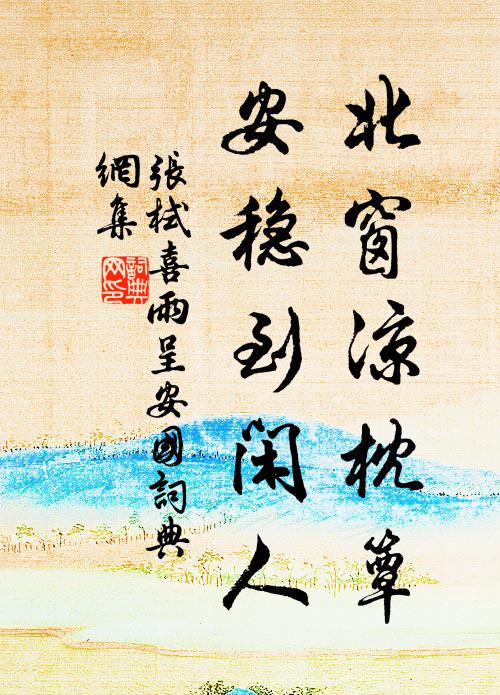 北窗凉枕簟
安稳到闲人
張栻喜雨呈安國詞典
網集
詞典
网印